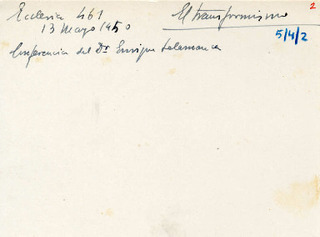 Ecclesia 461
13 Mayo 1950
El transformismo
2
5/4/2
Conferencia del Dr Enrique Salamanca